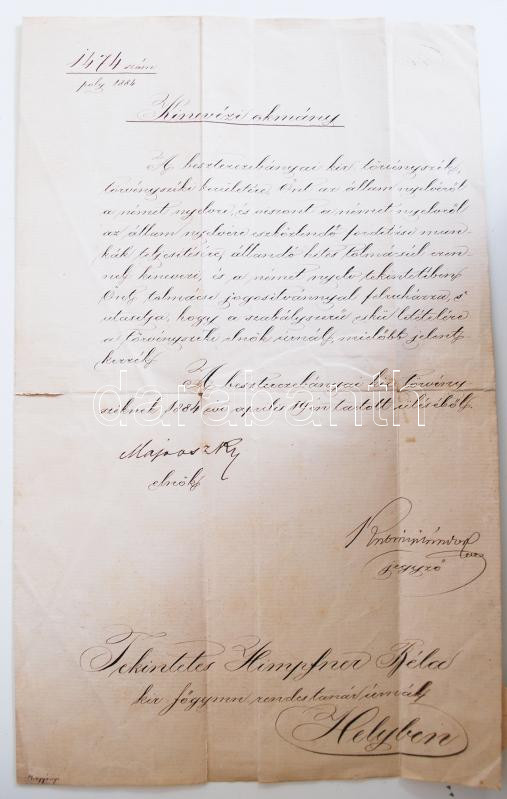 1474 szám
polg 1884
Kinevezési okmány
A beszterczebányai kir. törvényszék,
törvényszéki területére Önt az állam nyelvéről
a német nyelvre, és viszont a német nyelvről
az állam nyelvére eszközlendő forditási mun-
kák teljesitésére, állandó hites tolmácsul ezen-
nel kinevezi, és a német nyelv tekintetében
Önt tolmácsi jogositvánnyal felruházza, s
utasitja, hogy a szabályszerű eskü letételére
a törvényszéki elnök úrnál, mielőbb jelent-
kezzék.
A beszterczebányai kir. törvény
széknek 1884 évi április 19én tartott üléséből.
Majovszky
elnök
jegyző
Tekintetes Himpfner Béla
kir főgymn rendes tanár úrnak
Helyben
darabanth